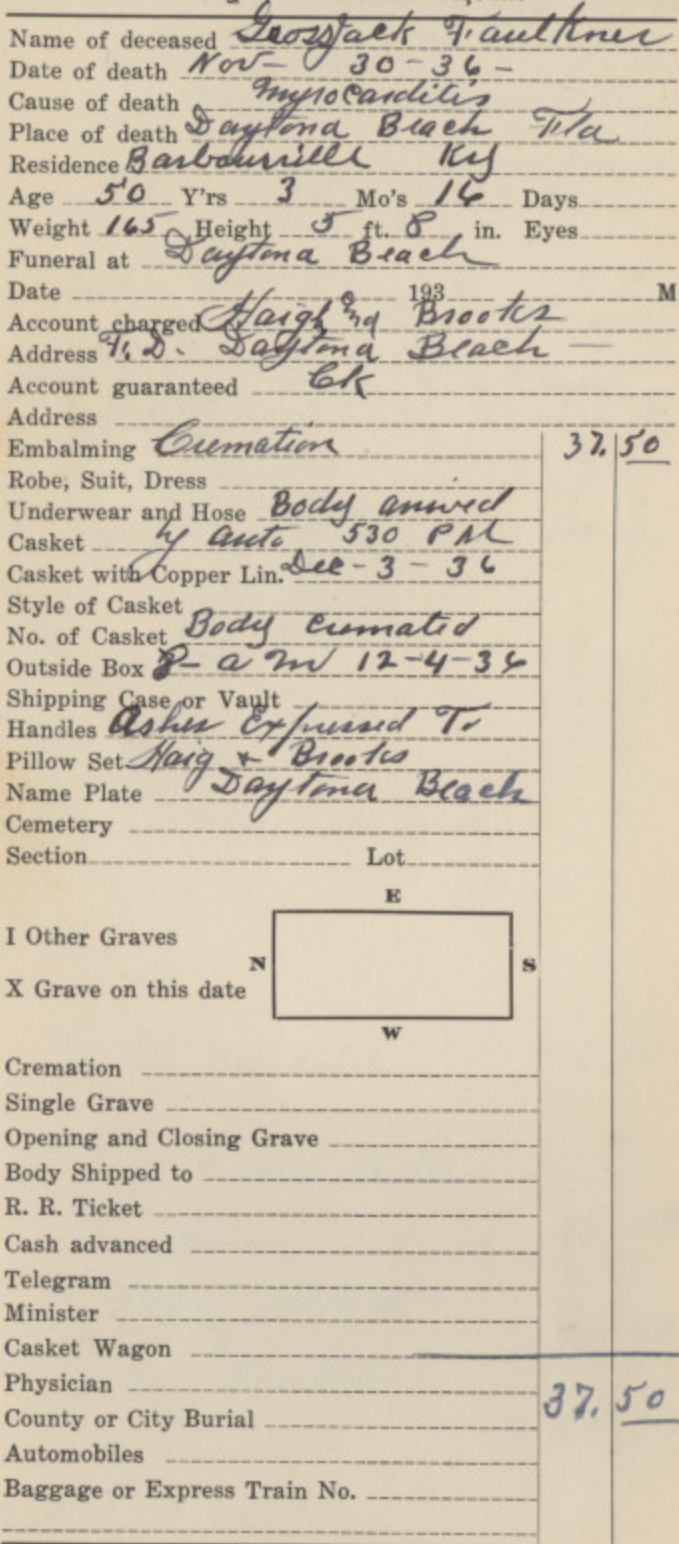 Name of deceased Geo Jack Faulkner
Date of death Nov - 30 - 36 -
Cause of death Myrocarditis
Place of death Daytona Beach Fla
Residence Barbourville Ky
Age 50 Y'rs 3 Mo's 16 Days
Weight 165 Height 5 ft. 8 in. Eyes
Funeral at Daytona Beach
Date 193 M
Account charged Haigh and Brooks
Address F. D. Daytona Beach —
Account guaranteed Ck
Address
Embalming Cremation 37. 50
Robe, Suit, Dress
Underwear and Hose Body arrived
Casket by auto 530 PM
Casket with Copper Lin. Dec - 3 - 36
Style of Casket
No. of Casket Body cremated
Outside Box 8 - a m 12-4-36
Shipping Case or Vault
Handles Ashes Expressed To
Pillow Set Haig + Brooks
Name Plate Daytona Beach
Cemetery
Section Lot
E
I Other Graves
N S
X Grave on this date
W
Cremation
Single Grave
Opening and Closing Grave
Body Shipped to
R. R. Ticket
Cash advanced
Telegram
Minister
Casket Wagon
Physician
County or City Burial 37. 50
Automobiles
Baggage or Express Train No.